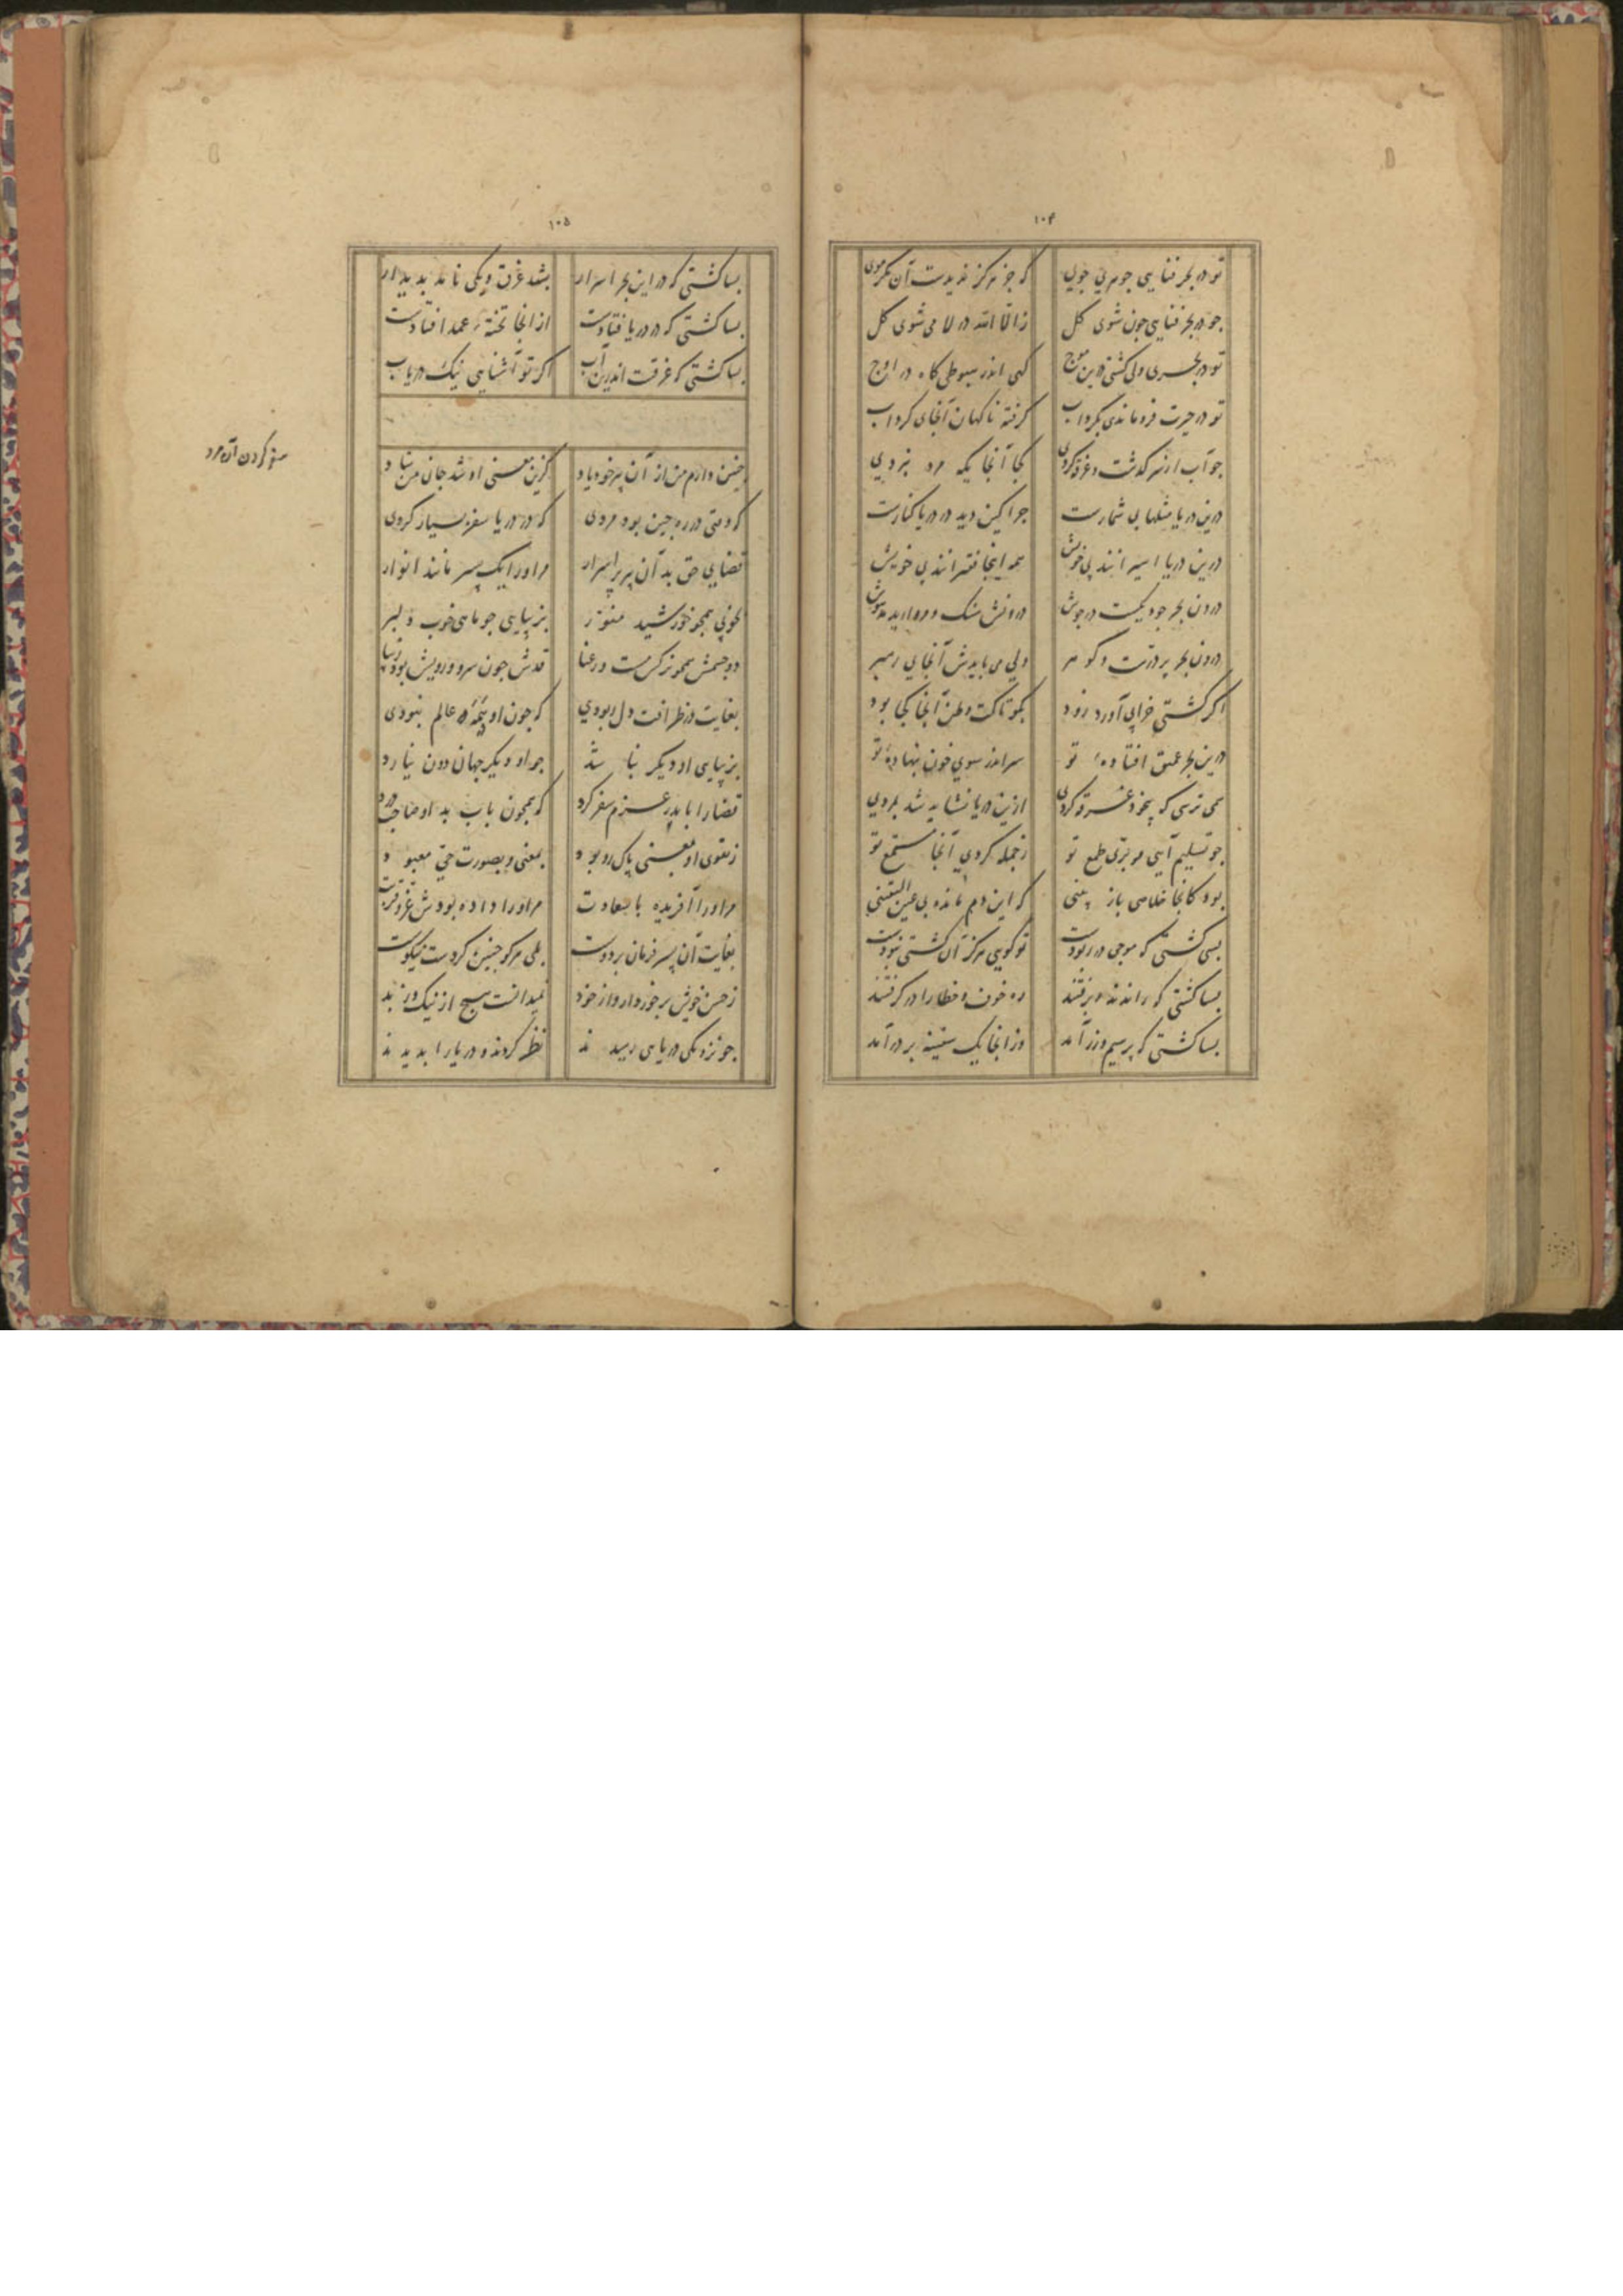 ۱۰۴
تو در بحر فنایی جوهری جوی که جز هرگز ندیدست آن
جو در بحر فنایی جون شوی کل ز الا الله در لا می شوی کل
تو در بحری ولی کشتی درین موج کهی اندر هبوطی کاه در اوج
تو در حیرت فرو ماندی بکرداب کرفته ناکهان آنجای کرداب
جو آب از سر کذشت و غرق کردی کجا آنجایکه مرد نبردی
درین دریا مثلها بی شمارست جرا کین دید در دریا کنارست
درین دریا اسیرانند بی خویش همه اینجا فقیرانند بی خویش
درون بحر جودیکست در جوش درونش سنک و مروارید
درون بحر پر درست و کوهر ولی می بایدش آنجای رهبر
اکر کشتی خرابی آورد زود بکو تا کت وطن آنجا کجا بود
درین بحر عمیق افتادهٔ تو سر اندر سوی خون بنهادهٔ تو
همی ترسی که بیخود غرقه کردی ازین دریا نشاید شد بمردی
جو تسلیم آیی و بری طمع تو ز جمله کردی آنجا مستمع تو
بود کانجا خلاصی باز بینی که این دم مانده بی عین الیقینی
بسی کشتی که موجی در ربودست تو کویی هرکز آن کشتی نبودست
بسا کشتی که راندند و برفتند ره خون و خطا را در کرفتند
بسا کشتی که پر سیم و زر آمد وز آنجا یک سفینه بر در آمد
۱۰۵
بسا کشتی که در این بحر اسرار بشد غرق و یکی نامد بدیدار
بسا کشتی که در دریا فتادست از آنجا تختهٔ عمدا فتادست
بسا کشتی که غرقت اندرین آب اکر تو آشنایی نیک دریاب
سفر کردن آن مرد
جنین دارم من از آن پیر خود یاد کزین معنی او شد جان من شاد
که وقتی در ره جین بود مردی که در دریا سفر بسیار کردی
قضای حق بد آن پیر پر اسرار مر اورا یک پسر مانند انوار
بخوبی همجو خورشید منور بزیبایی جو ماهی خوب و دلبر
دو جشمش همجو نرکس مست و رعنا قدش جون سرو و رویش بود زیبا
بغایت در ظرافت دل ربودی که جون او در همه عالم نبودی
بزیبایی او دیکر نباشد جو او دیکر جهان دون نیارد
قضا را با پدر عزم سفر کرد که همجون باب بد او صاحب درد
ز تقوی او بمعنی پاک رو بود بمعنی و بصورت حی معبود
مر اورا آفریده با سعادت مر اورا داده بودش
بغایت آن پسر فرمان بردوست بلی هرکو جنین کردست نیکوست
ز حسن خویش برخوردار و از خود نمیدانست هیج از نیک و از بد
جو نزدیکی دریا می رسیدند نظر کردند و دریا را بدیدند